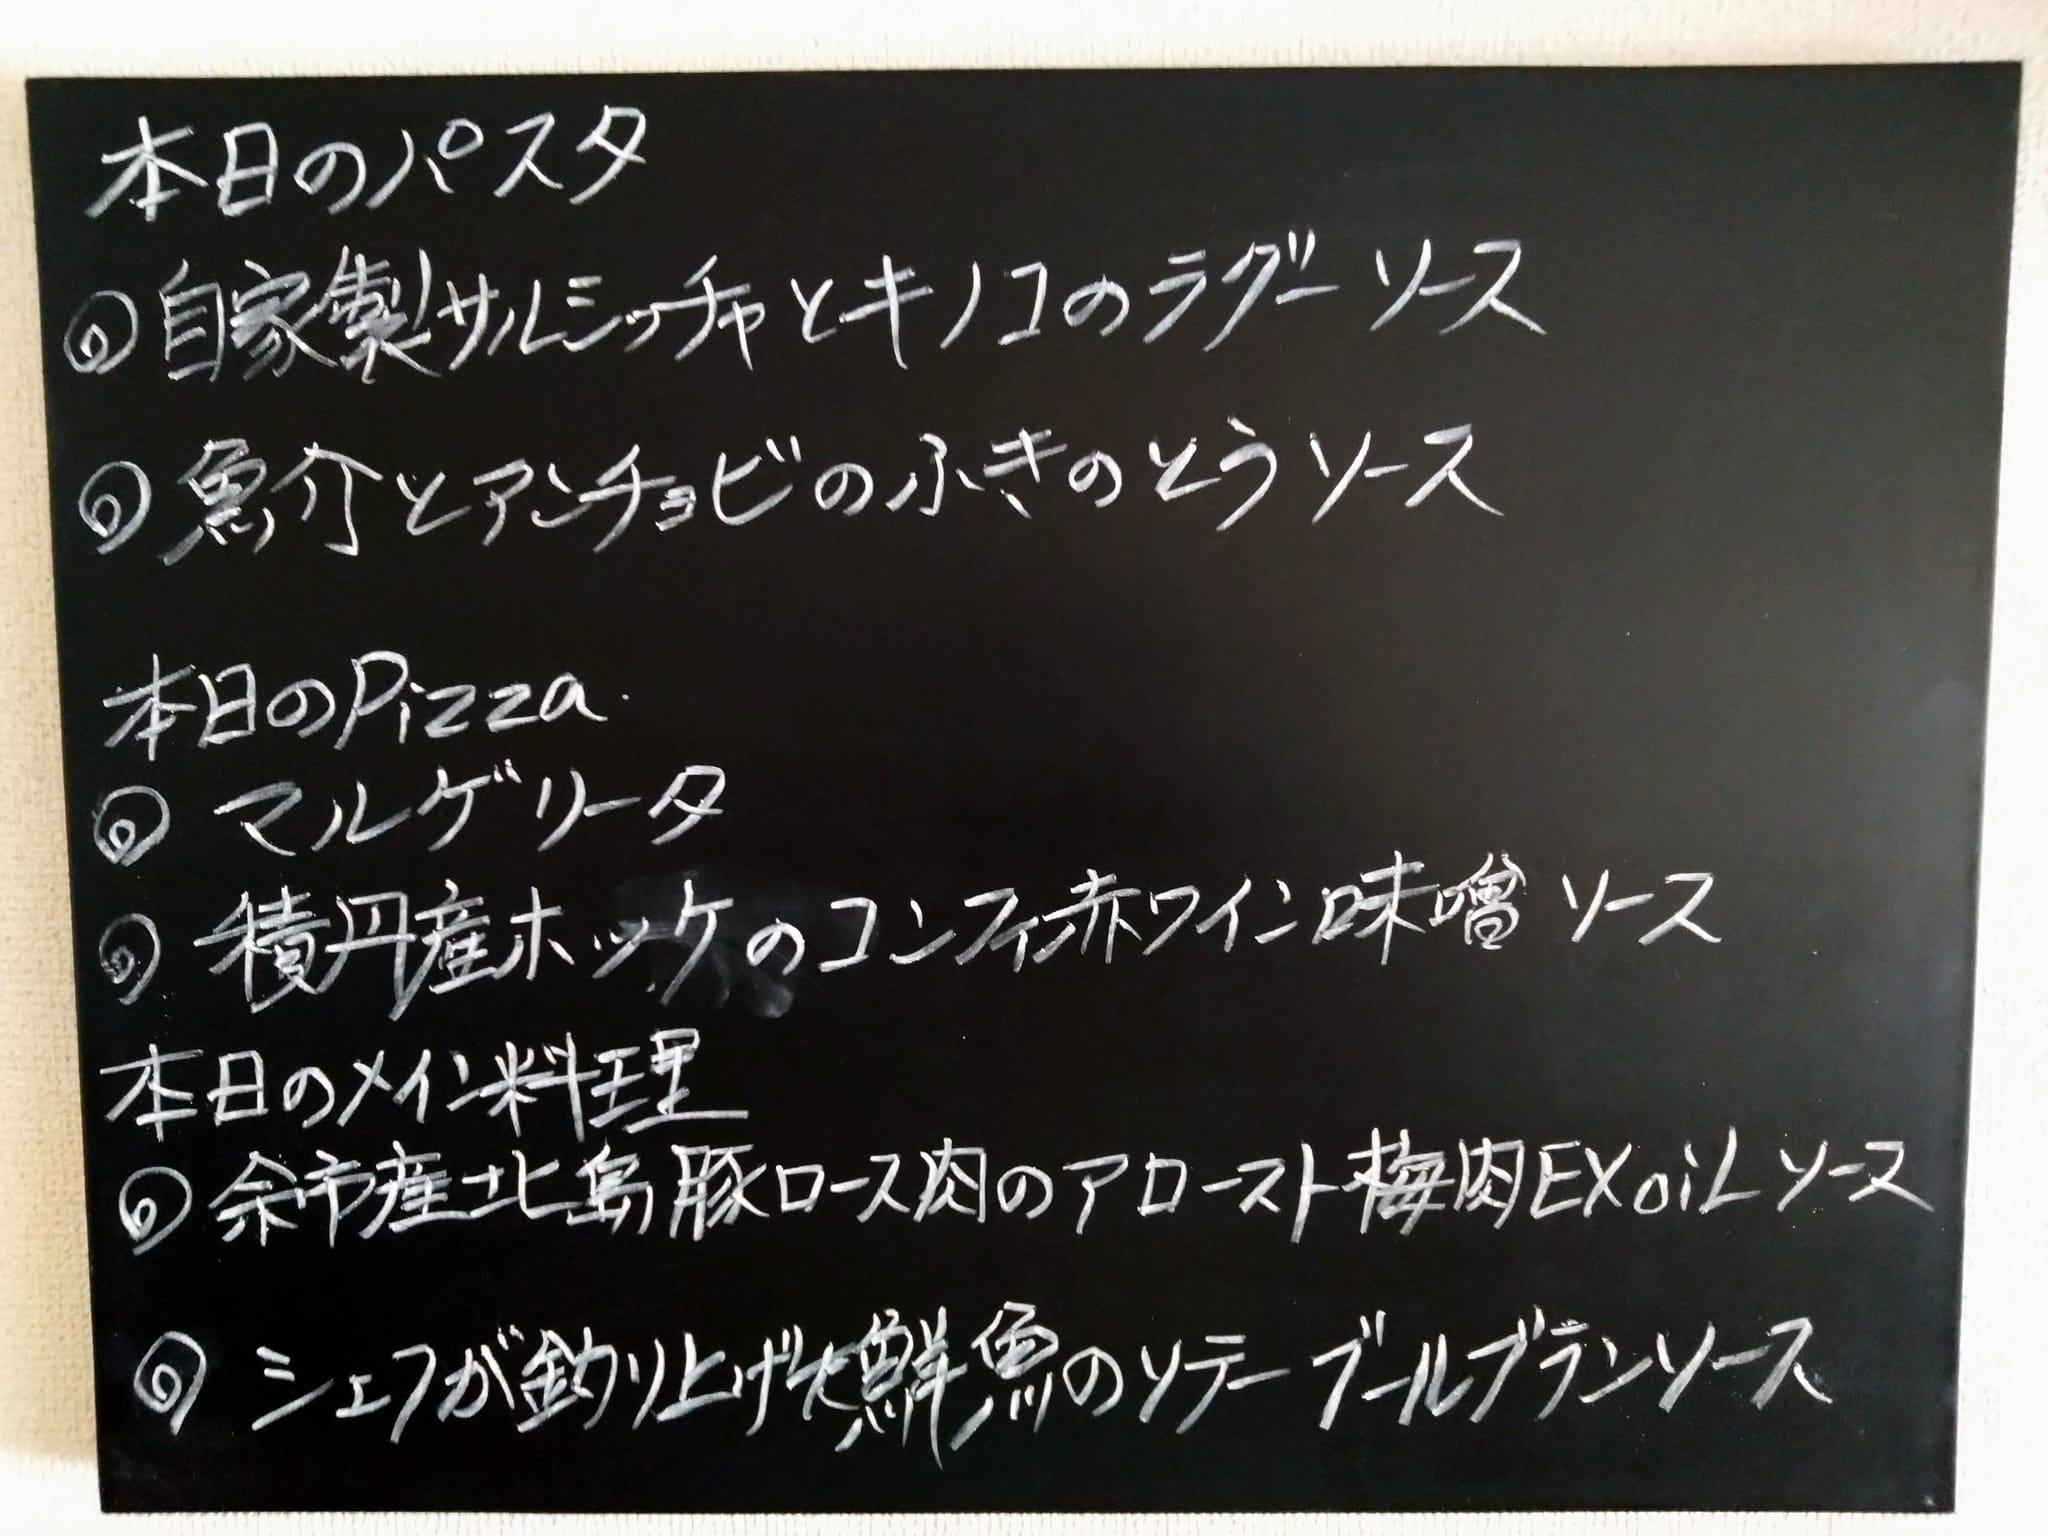 本日のパスタ
◎自家製サルシッチャとキノコのラグーソース
◎魚介とアンチョビのふきのとうソース
本日のPizza.
◎マルゲリータ
◎積丹産ホッケのコンフィ赤ワイン味噌ソース
本日のメイン料理
◎余市産北島豚ロース肉のアロースト梅肉EXoiLソース
◎シェフが釣り上げた鮮魚のソテーブールブランソース